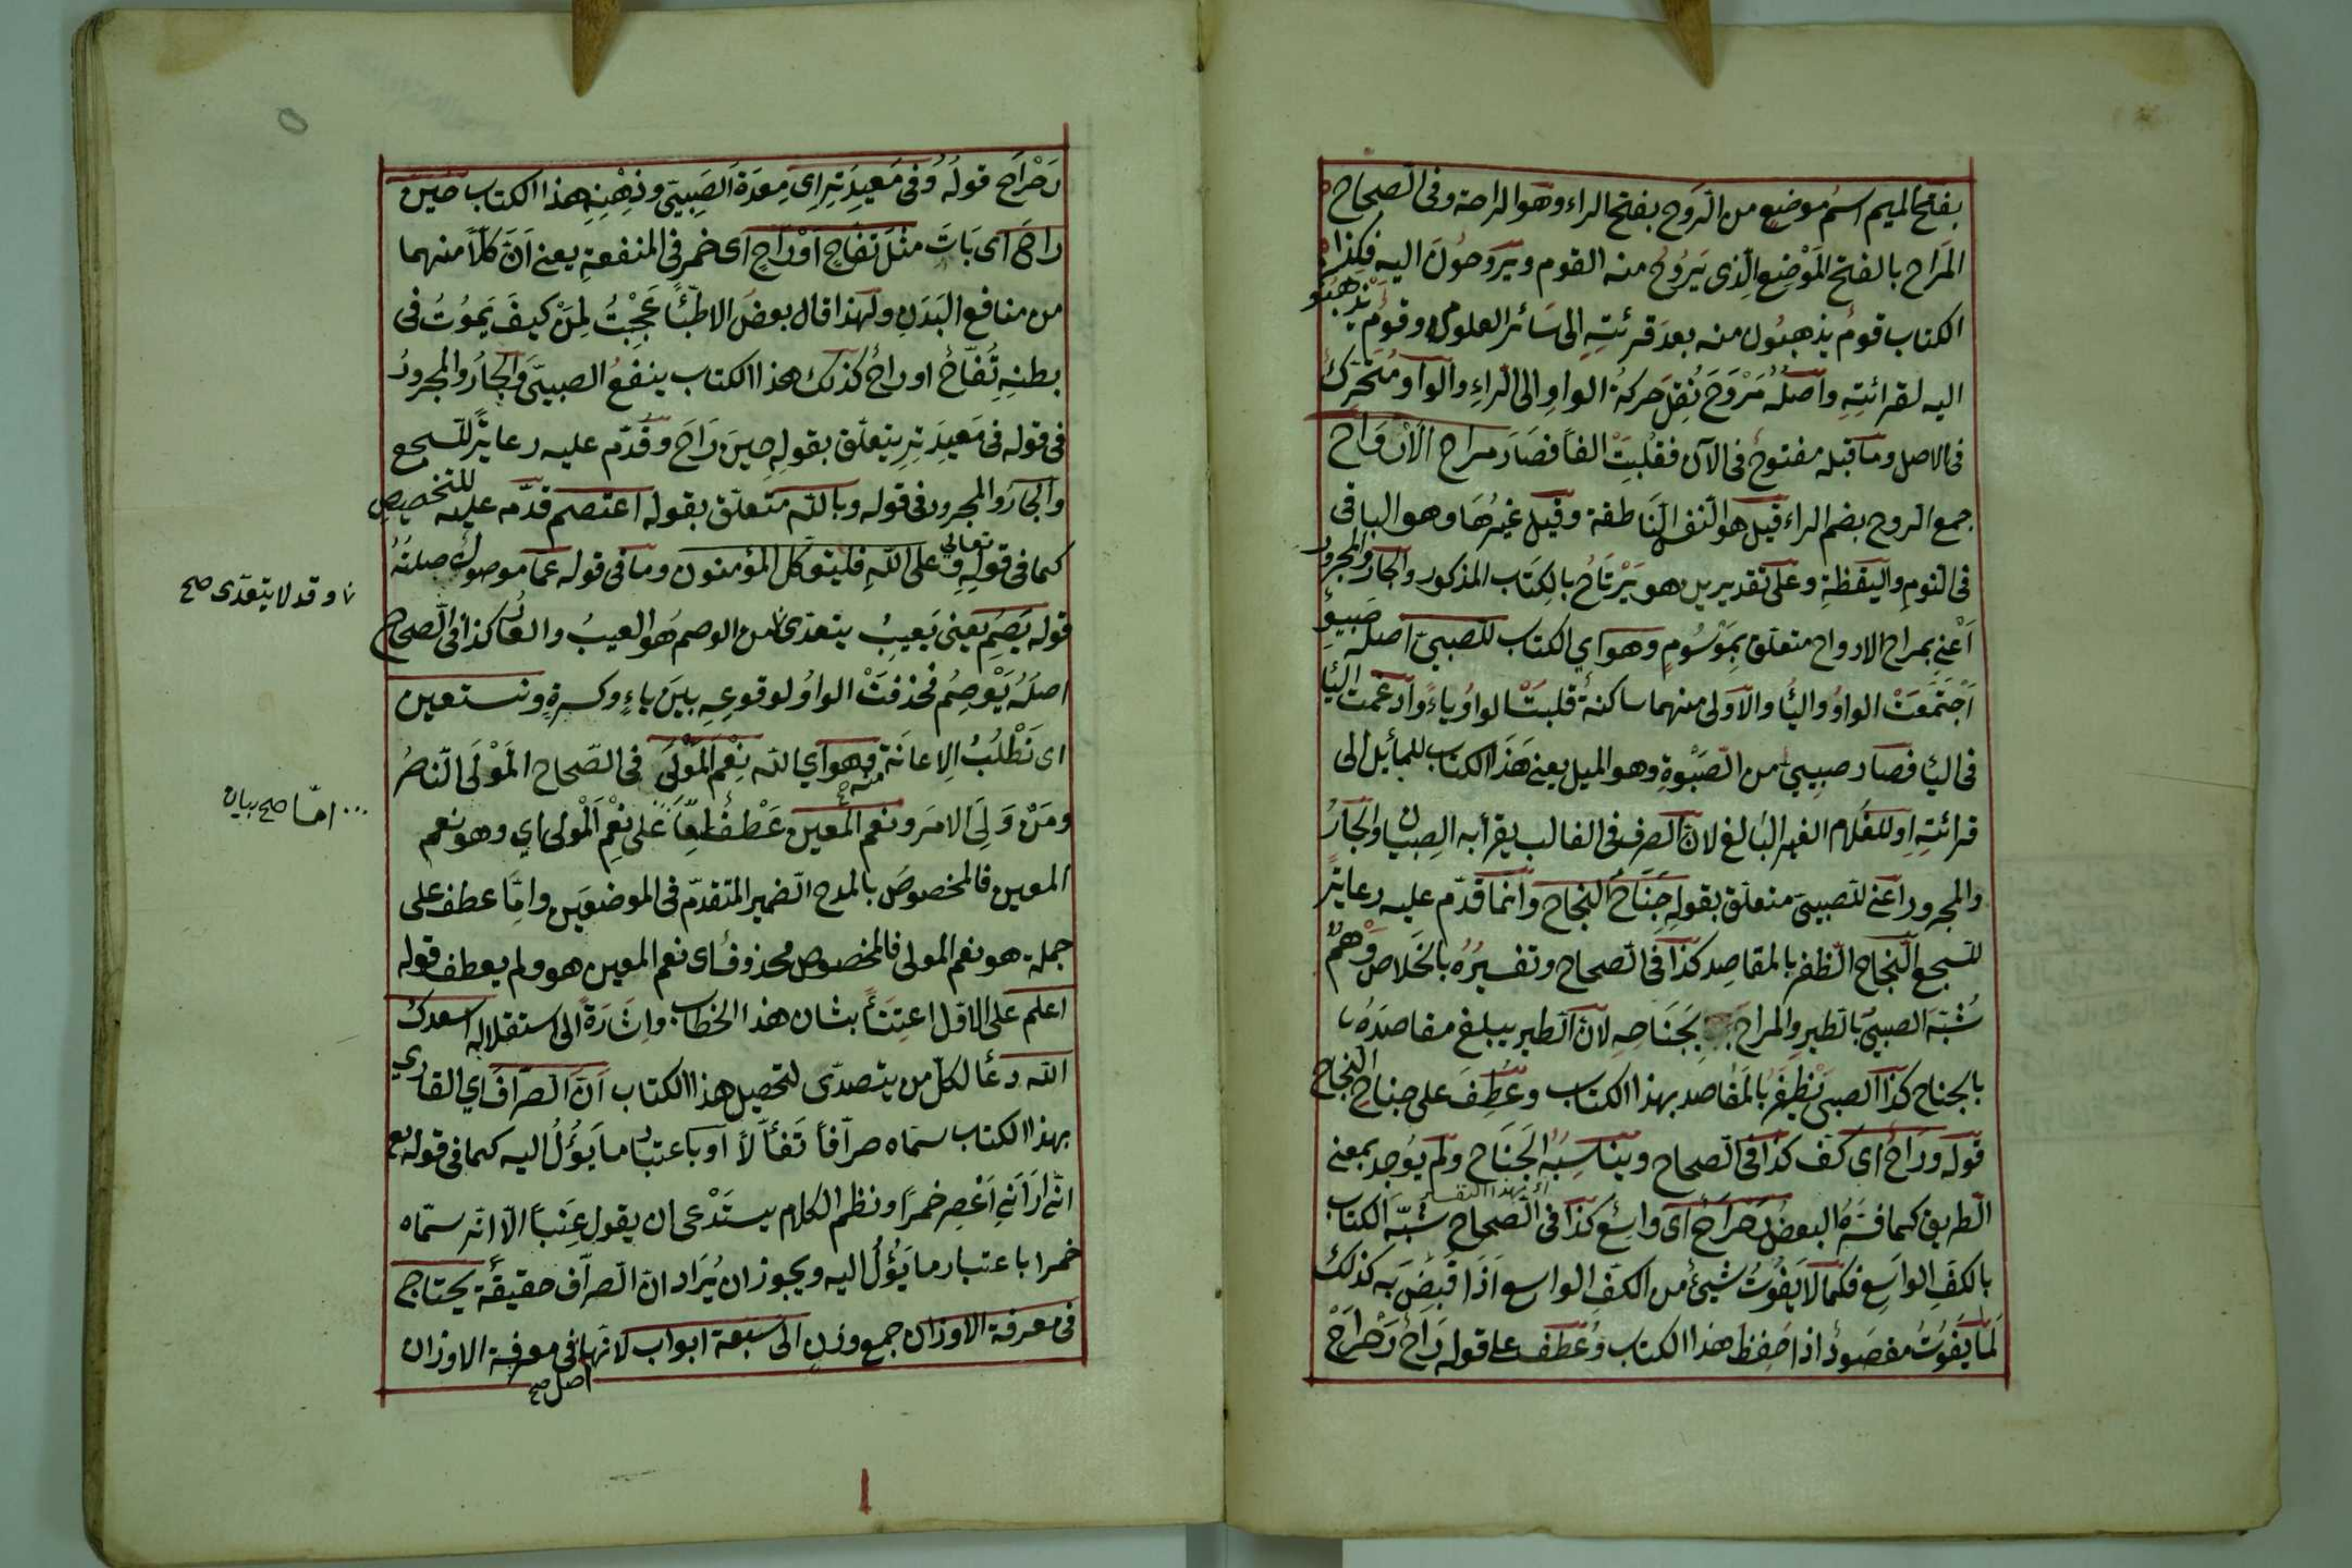 بفتح الميم اسم موضع من الروح بفتح الراء وهو الراحة وفى الصحاح
المراح بالفتح الموضع الذى يروح منه القوم ويروحون اليه فكذا
الكتاب قوم يذهبون منه بعد قرئته الى سائر العلوم وقوم يذهبو
اليه لقرائته واصله مروح نقل حركة الواو الى الراء والواو متحرك
فى الاصل وما قبله مفتوح فى الآن فقلبت الفا فصار مراح الارواح
جمع الروح بضم الراء قيل هو النفس الناطقة وقيل غيرها وهو الباقى
فى النوم واليقظة وعلى تقديرين هو يرتاح بالكتاب المذكور والجار والمجرور
اعنى بمراح الارواح متعلق بموسوم وهو اي الكتاب للصبى اصله صبيو
اجتمعت الواو والياء والاولى منهما ساكنة قلبت الواو ياء وادغمت اليا
فى اليا فصار صبى من الصبوة وهو الميل يعنى هذا الكتاب للمأيل الى
قرائته او للغلام الغير البالغ لان الصرف فى الغالب يقرأ به الصبيان والجار
والمجرور اعنى للصبى متعلق بقوله جناح النجاح وانما قدم عليه رعاية
للسجع النجاح الظفر بالمقاصد كذا فى الصحاح وتفسيره بالخلاص وهم
شبه الصبى بالطير والمراح بجناحه لان الطير يبلغ مقاصده
بالجناح كذا الصبى يظفر بالمقاصد بهذا الكتاب وعطف على جناح النجاح
قوله وراح اى كف كذا فى الصحاح ويناسبه الجناح ولم يوجد بمعنى
الطريق كما فسره البعض رحراح اى واسع كذا فى الصحاح شبه الكتاب
بالكف الواسع فكما لا يفوت شيئ من الكف الواسع اذا قبض به كذلك
لما يفوت مقصود اذا حفظ هذا الكتاب وعطف على قوله راح رحراح
رحراح قوله وفى معيدته اى معدة الصبى وذهنه هذا الكتاب حين
راح اى بات مثل تفاح او راح اى خمر فى المنفعة يعنى ان كلا منهما
من منافع البدن ولهذا قال بعض الاطبا عجبت لمن كيف يموت فى
بطنه تفاح او راح كذلك هذا الكتاب ينفع الصبى والجار والمجرور
فى قوله فى معيدته يتعلق بقوله حين راح وقدم عليه رعاية للسجع
والجار والمجرور فى قوله وبالله متعلق بقوله اعتصم قدمه عليه للتخصيص
كما فى قوله تعالى وعلى الله فليتوكل المؤمنون وما فى قوله عما موصول صلته
قوله يصم يعنى يعيب يتعدى من الوصم هو العيب والعار كذا فى الصحاح
وقد لا يتعدى صح
اصله يوصم فحذفت الواو لوقوعه بين ياء وكسرة ونستعين
اى نطلب الاعانة منه وهو اي الله نعم المولى فى الصحاح المولى الناصر
ومن ولى الامر ونعم المعين عطف على نعم المولى اي وهو نعم
اما صح بيان
المعين فالمخصوص بالمدح الضمير المتقدم فى الموضعين واما عطف على
جملة هو نعم المولى فالمخصوص محذوف اى نعم المعين هو ولم يعطف قوله
اعلم على الاول اعتناء بشان هذا الخطاب واشارة الى استقلاله اسعدك
الله دعا لكل من يتصدى لتحصيل هذا الكتاب ان الصراف اي القارى
بهذا الكتاب سماه صرافا تفألا او باعتبار ما يؤل اليه كما فى قوله تع
انى ارانى اعصر خمرا ونظم الكلام يستدعى ان يقول عنبا الا انه سماه
خمرا باعتبار ما يؤل اليه ويجوز ان يراد ان الصراف حقيقة يحتاج
فى معرفة الاوزان جمع وزن الى سبعة ابواب لانها فى معرفة الاوزان
اصل صح